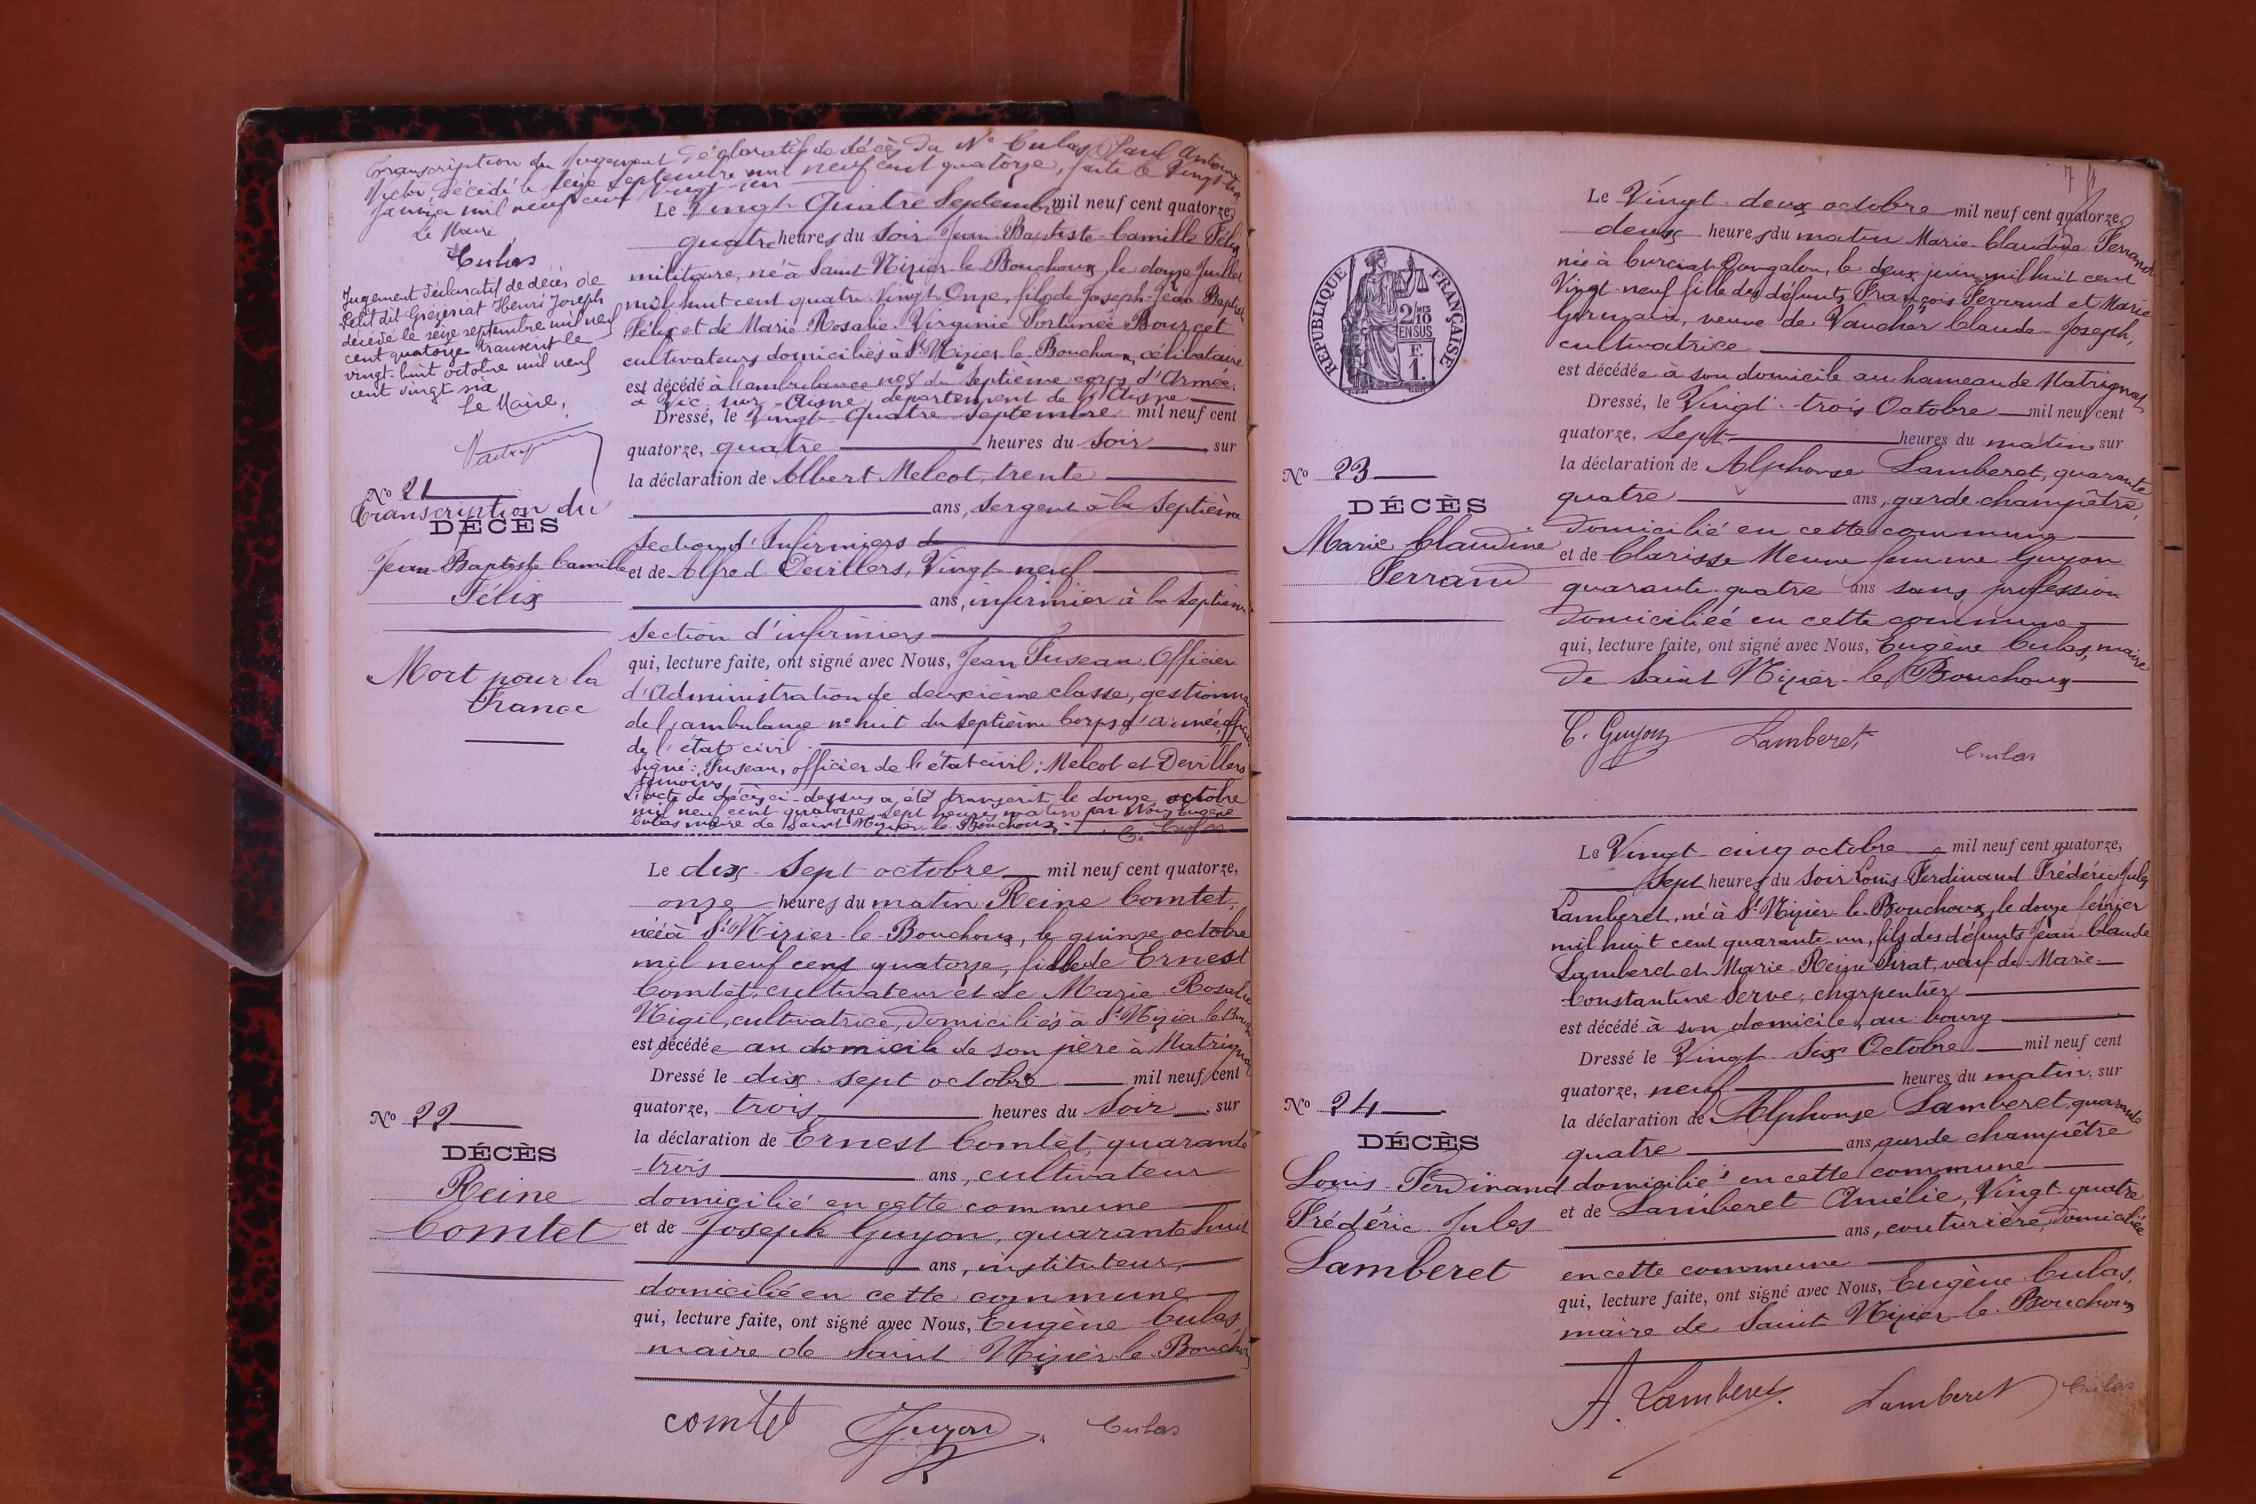 Transcription du Jugement déclaratif de décès du Né Culas Paul Antoine
Victor décédé le seize septembre mil neuf cent quatorze, faite le Vingt-un
Janvier mil neuf cent vingt-un
Le Maire
Culas
Jugement déclaratif de décès de
Petit dit Grezeriat Henri Joseph
décédé le seize septembre mil neuf
cent quatorze transcrit le
vingt-huit octobre mil neuf
cent vingt six
Le Maire,
No 21
Transcription du
DÉCÈS
Jean-Baptiste Camille
Félix
Mort pour la
France
Le Vingt-Quatre Septembre mil neuf cent quatorze,
quatre heures du Soir Jean-Baptiste-Camille Félix
militaire, né à Saint-Nizier-le-Bouchoux, le douze Juillet
mil huit cent quatre-Vingt-Onze, fils de Joseph-Jean-Baptiste
Félix et de Marie-Rosalie-Virginie-Fortunée Bourget
cultivateurs domiciliés à St Nizier-le-Bouchoux, célibataire
est décédé à l'ambulance no 8 du Septième corps d'Armée,
à Vic-sur-Aisne, département de l'Aisne
Dressé, le Vingt-Quatre Septembre mil neuf cent
quatorze, quatre heures du Soir, sur
la déclaration de Albert Melcot, trente
ans, sergent à la Septième
Section d'Infirmiers
et de Alfred Devillers, Vingt-neuf
ans, infirmier à la Septième
Section d'infirmiers
qui, lecture faite, ont signé avec Nous, Jean Fuseau, Officier
d'Administration de deuxième classe, gestionnaire
de l'ambulance no huit du Septième Corps d'armée, officier
de l'état civil.
Signé: Fuseau, officier de l'état civil; Melcot et Devillers
témoins
L'acte de décès ci-dessus a été transcrit le douze octobre
mil neuf cent quatorze, sept heures matin par Nous Eugène
Culas maire de Saint-Nizier-le-Bouchoux.
E. Culas
No 22
DÉCÈS
Reine
Comtet
Le dix-Sept octobre mil neuf cent quatorze,
onze heures du matin Reine Comtet,
née à St Nizier-le-Bouchoux, le quinze octobre
mil neuf cent quatorze, fille de Ernest
Comtet, cultivateur et de Marie-Rosalie
Nigil, cultivatrice, domiciliés à St Nizier-le-Bouch
est décédée au domicile de son père à Matrignat
Dressé le dix-sept octobre mil neuf cent
quatorze, trois heures du Soir, sur
la déclaration de Ernest Comtet, quarante
trois ans, cultivateur
domicilié en cette commune
et de Joseph Guyon, quarante huit
ans, instituteur,
domicilié en cette commune
qui, lecture faite, ont signé avec Nous, Eugène Culas,
maire de Saint-Nizier-le-Bouchoux
comtet Guyon Culas
74
RÉPUBLIQUE FRANÇAISE
2/10 EN SUS
F. 1.
No 23
DÉCÈS
Marie Claudine
Ferrand
Le Vingt-deux octobre mil neuf cent quatorze,
deux heures du matin Marie-Claudine Ferrand
née à Curciat-Dongalon, le deux juin mil huit cent
Vingt-neuf fille des défunts François Ferrand et Marie
Germain, veuve de Vauchar Claude-Joseph,
cultivatrice
est décédée à son domicile au hameau de Matrignat
Dressé, le Vingt-trois Octobre mil neuf cent
quatorze, Sept heures du matin, sur
la déclaration de Alphonse Lamberet, quarante
quatre ans, garde champêtre,
domicilié en cette commune
et de Clarisse Meune femme Guyon
quarante-quatre ans sans profession
domiciliée en cette commune
qui, lecture faite, ont signé avec Nous, Eugène Culas, maire
de Saint-Nizier-le-Bouchoux
C. Guyon Lamberet Culas
No 24
DÉCÈS
Louis-Ferdinand
Frédéric-Jules
Lamberet
Le Vingt-cinq octobre mil neuf cent quatorze,
Sept heures du Soir Louis-Ferdinand Frédéric-Jules
Lamberet, né à St Nizier-le-Bouchoux, le douze février
mil huit cent quarante-un, fils des défunts Jean-Claude
Lamberet et Marie-Reine Pirat, veuf de Marie-
Constantine Serve, charpentier
est décédé à son domicile, au bourg
Dressé le Vingt-Six Octobre mil neuf cent
quatorze, neuf heures du matin, sur
la déclaration de Alphonse Lamberet, quarante
quatre ans, garde champêtre
domicilié en cette commune
et de Lamberet Amélie, Vingt-quatre
ans, couturière, domiciliée
en cette commune
qui, lecture faite, ont signé avec Nous, Eugène Culas,
maire de Saint-Nizier-le-Bouchoux
A. Lamberet Lamberet Culas